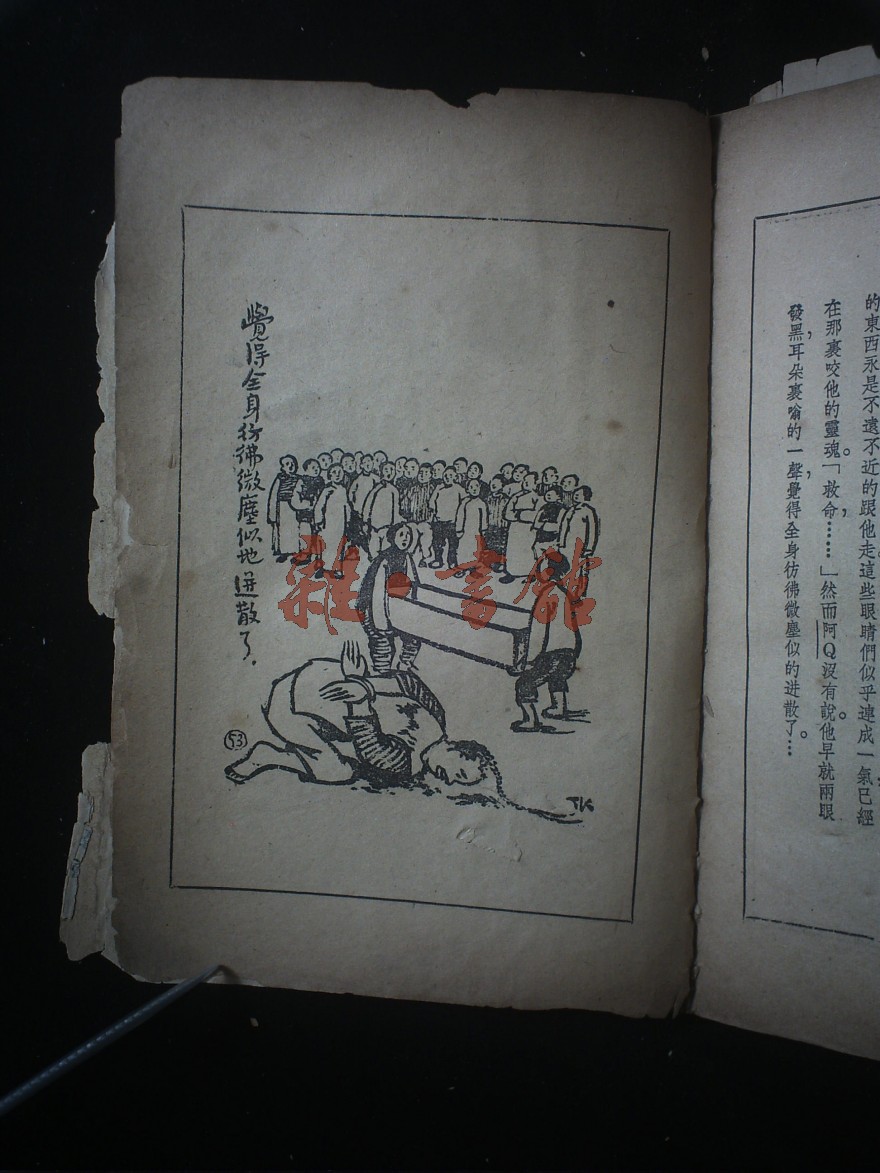 覺得全身彷彿微塵似地迸散了．
53
TK
雜·書館
的東西永是不遠不近的跟他走這些眼睛們似乎連成一氣已經
在那裏咬他的靈魂。「救命，……」然而阿Q沒有說。他早就兩眼
發黑，耳朵裏嗡的一聲，覺得全身彷彿微塵似的迸散了。…